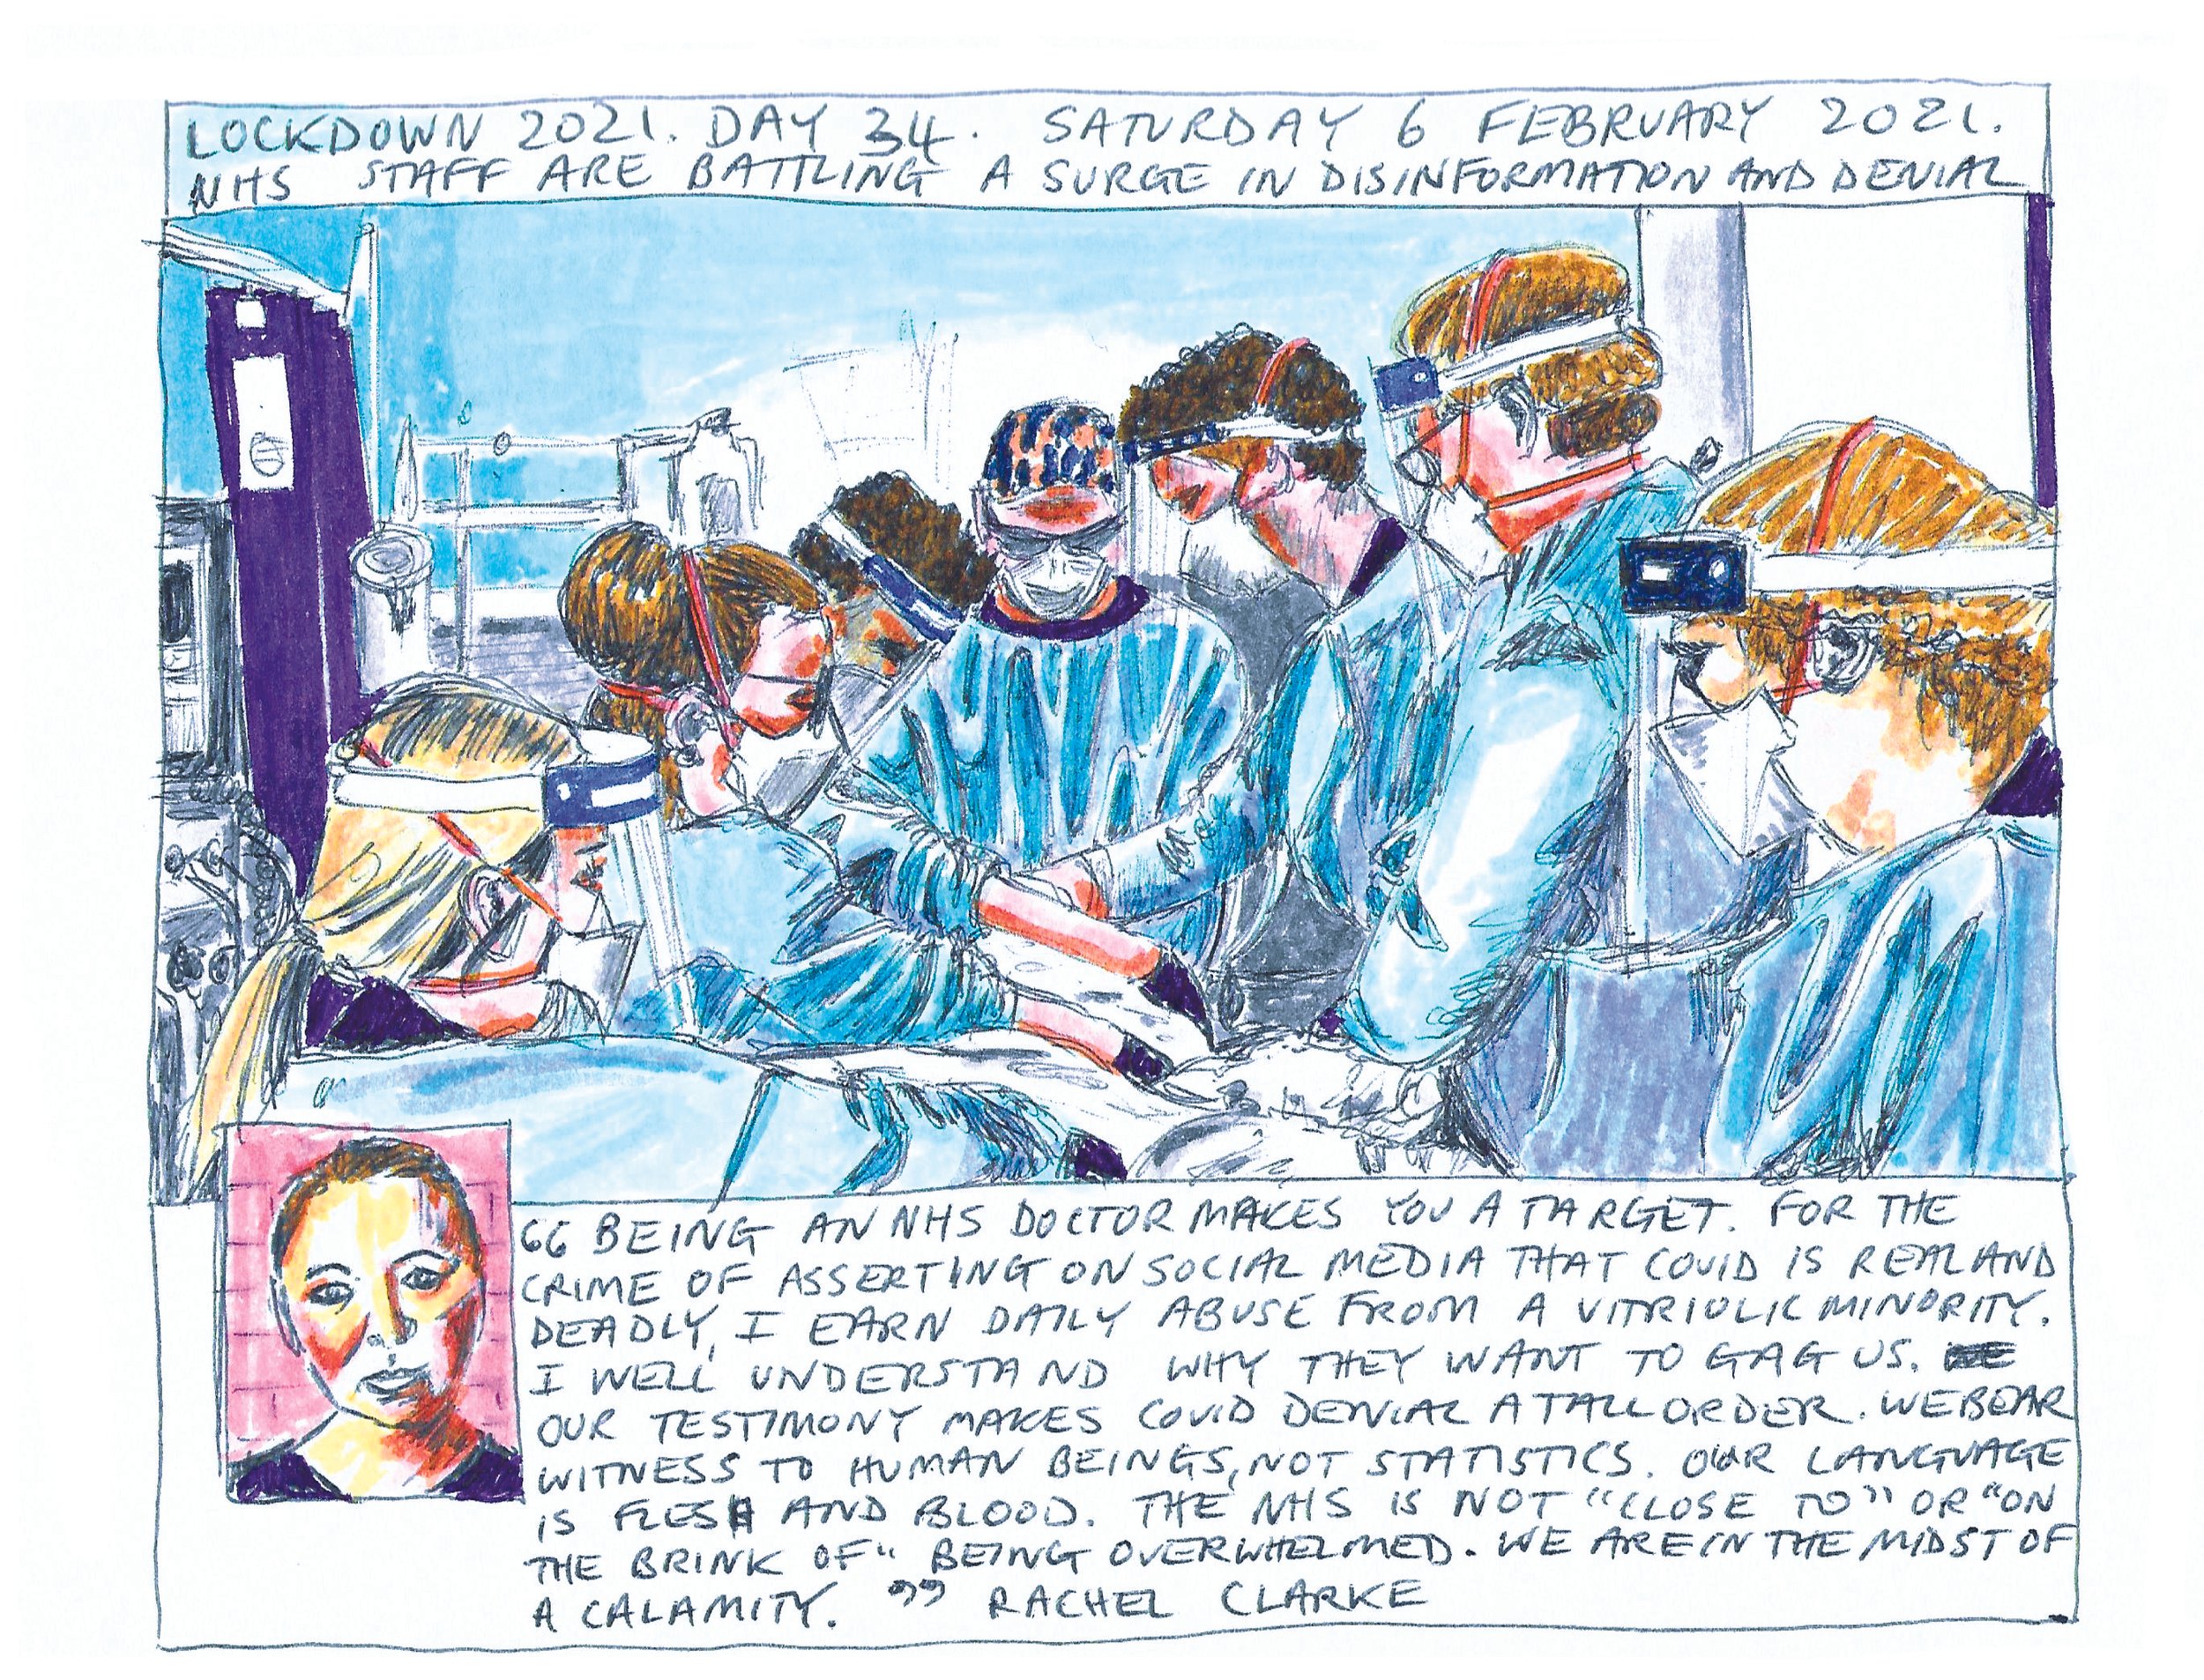 LOCKDOWN 2021. DAY 34. SATURDAY 6 FEBRUARY 2021.
NHS STAFF ARE BATTLING A SURGE IN DISINFORMATION AND DENIAL
“ BEING AN NHS DOCTOR MAKES YOU A TARGET. FOR THE
CRIME OF ASSERTING ON SOCIAL MEDIA THAT COVID IS REAL AND
DEADLY, I EARN DAILY ABUSE FROM A VITRIOLIC MINORITY.
I WELL UNDERSTAND WHY THEY WANT TO GAG US.
OUR TESTIMONY MAKES COVID DENIAL A TALL ORDER. WE BEAR
WITNESS TO HUMAN BEINGS, NOT STATISTICS. OUR LANGUAGE
IS FLESH AND BLOOD. THE NHS IS NOT “CLOSE TO” OR “ON
THE BRINK OF“ BEING OVERWHELMED. WE ARE IN THE MIDST OF
A CALAMITY. ” RACHEL CLARKE